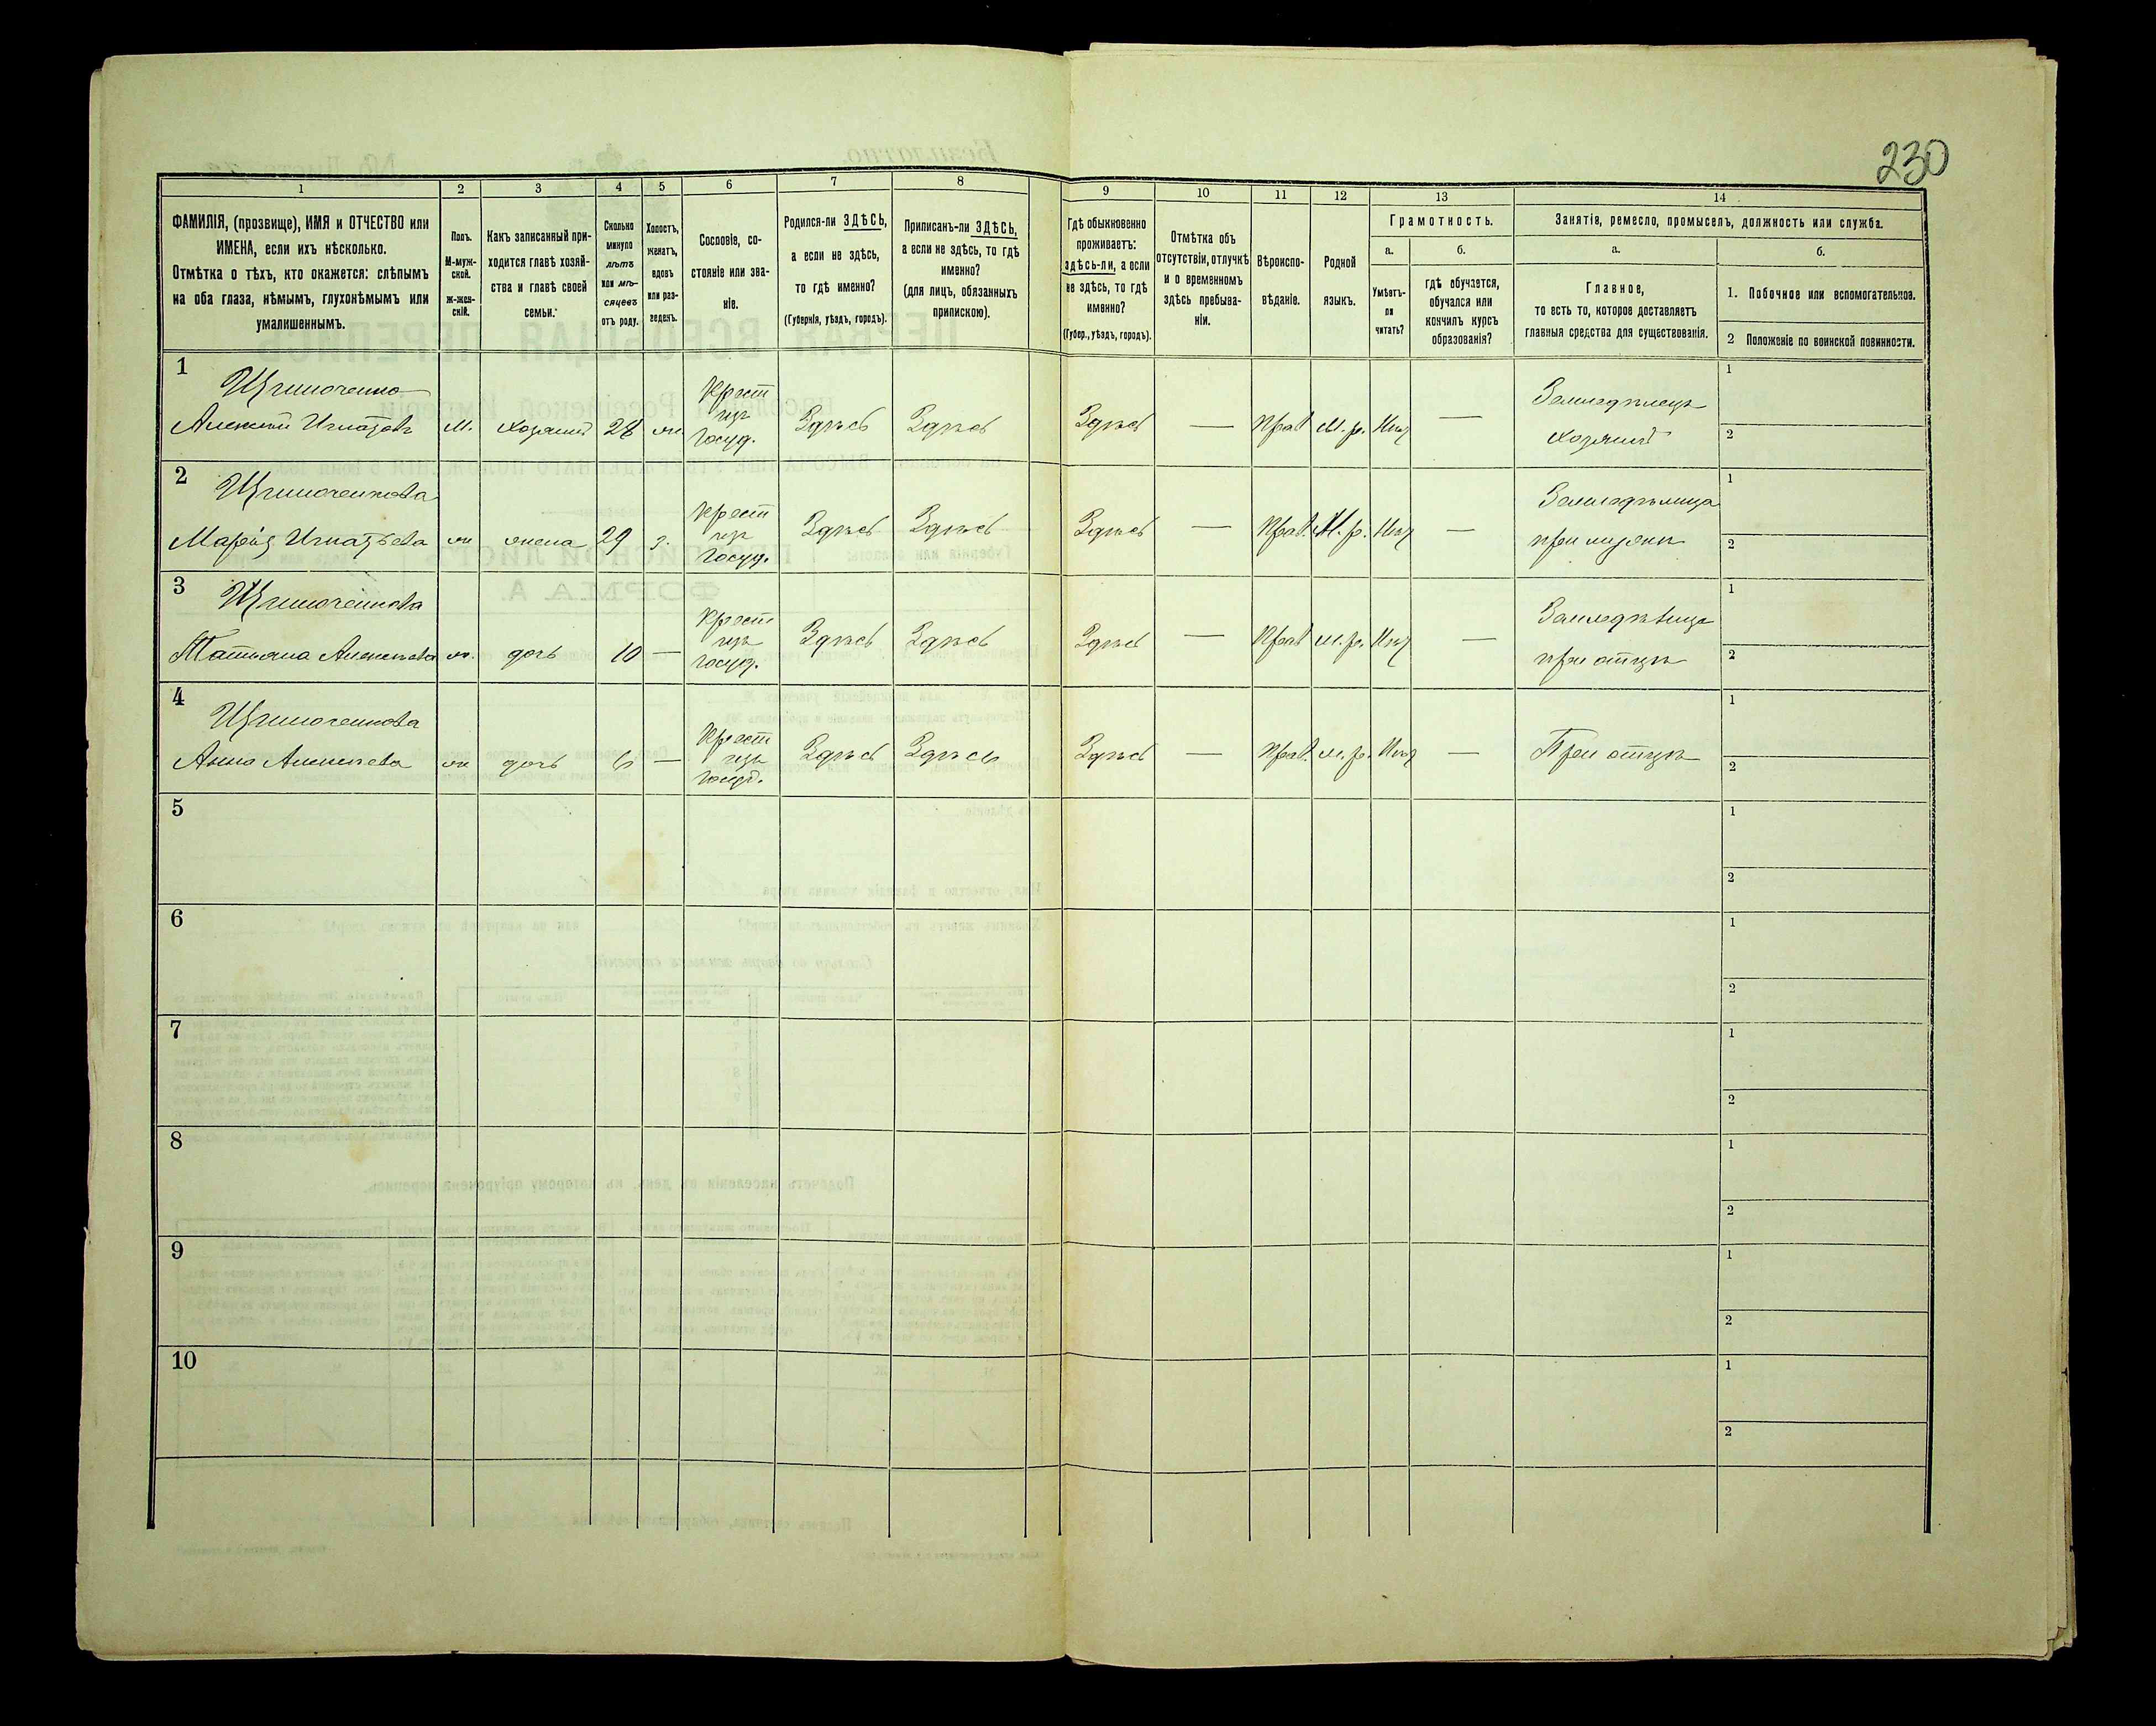 230
1 2 3 4 5 6 7 8 9 10 11 12 13 14
ФАМИЛІЯ, (прозвище), ИМЯ и ОТЧЕСТВО или
ИМЕНА, если ихъ нѣсколько.
Отмѣтка о тѣхъ, кто окажется: слѣпымъ
на оба глаза, нѣмымъ, глухонѣмымъ или
умалишеннымъ.
Полъ.
М-муж-
ской.
ж-жен-
скій.
Какъ записанный при-
ходится главѣ хозяй-
ства и главѣ своей
семьи.
Сколько
минуло
лѣтъ
или мѣ-
сяцевъ
отъ роду.
Холостъ,
женатъ,
вдовъ
или раз-
веденъ.
Сословіе, со-
стояніе или зва-
ніе.
Родился-ли ЗДѢСЬ,
а если не здѣсь,
то гдѣ именно?
(Губернія, уѣздъ, городъ).
Приписанъ-ли ЗДѢСЬ,
а если не здѣсь, то гдѣ
именно?
(для лицъ, обязанныхъ
припискою).
Гдѣ обыкновенно
проживаетъ:
здѣсь-ли, а если
не здѣсь, то гдѣ
именно?
(Губер., уѣздъ, городъ).
Отмѣтка объ
отсутствіи, отлучкѣ
и о временномъ
здѣсь пребыва-
ніи.
Вѣроиспо-
вѣданіе.
Родной
языкъ.
Грамотность.
а.
Умѣетъ-
ли
читать?
б.
гдѣ обучается,
обучался или
кончилъ курсъ
образованія?
Занятія, ремесло, промыселъ, должность или служба.
а.
Главное,
то есть то, которое доставляетъ
главныя средства для существованія.
б.
1. Побочное или вспомогательное.
2 Положеніе по воинской повинности.
1
Алексѣй Игнатовъ М. хозяинъ 28 ж.
Крест
изъ
Госуд.
Здѣсь Здѣсь Здѣсь — Прав М. р. Нѣтъ —
Земледѣлецъ
хозяинъ
1
2
2
Марія Игнатьева ж жена 29 з.
Крест
изъ
Госуд.
Здѣсь Здѣсь Здѣсь — Прав. М. р. Нѣтъ —
при мужѣ
1
2
3
Татьяна Алексѣева ж. дочь 10 —
Крест
изъ
Госуд.
Здѣсь Здѣсь Здѣсь — Прав М. р. Нѣтъ —
при отцѣ
1
2
4
Анна Алексѣева ж дочь 6 —
Крест
изъ
Госуд.
Здѣсь Здѣсь Здѣсь — Прав. м. р. Нѣтъ — При отцѣ
1
2
5
1
2
6
1
2
7
1
2
8
1
2
9
1
2
10
1
2